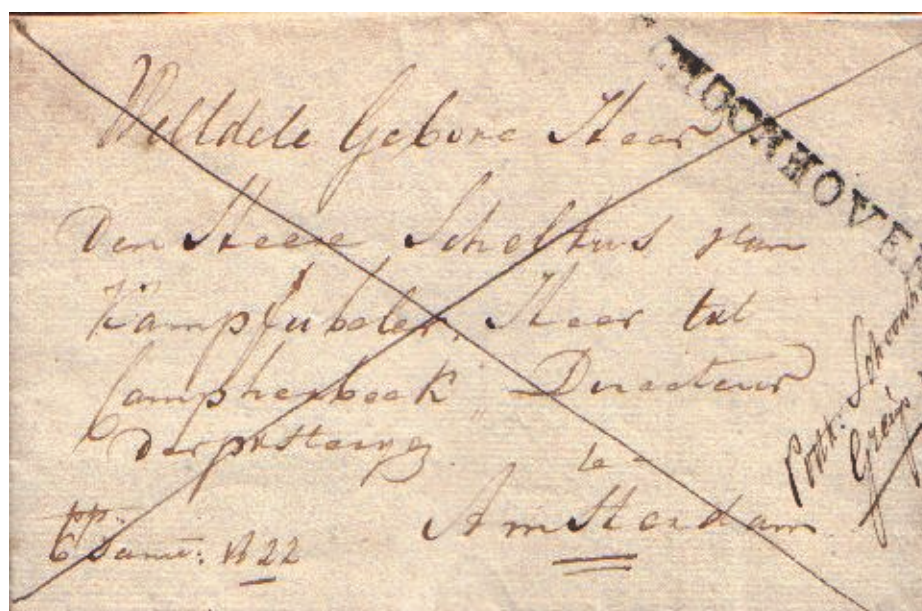 SCHOONHOVE
WelEdele Gebore Heer
Den Heere Scheltus van
Kampfubeler, Heer tot
Campherbeek Directeur
der posterey
te
Amsterdam
Jann: 1822
Post: Schoonh